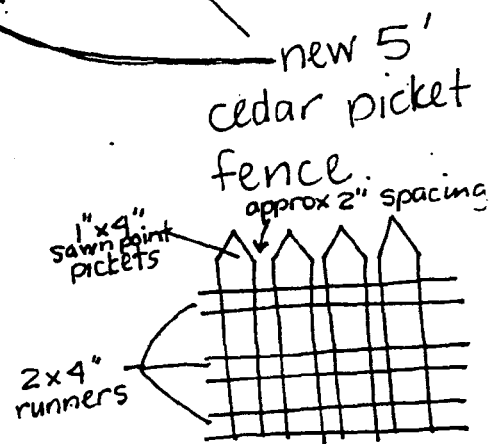 new 5'
cedar picket
fence.
approx 2" spacing
1"x4"
sawn point
pickets
2x4"
runners